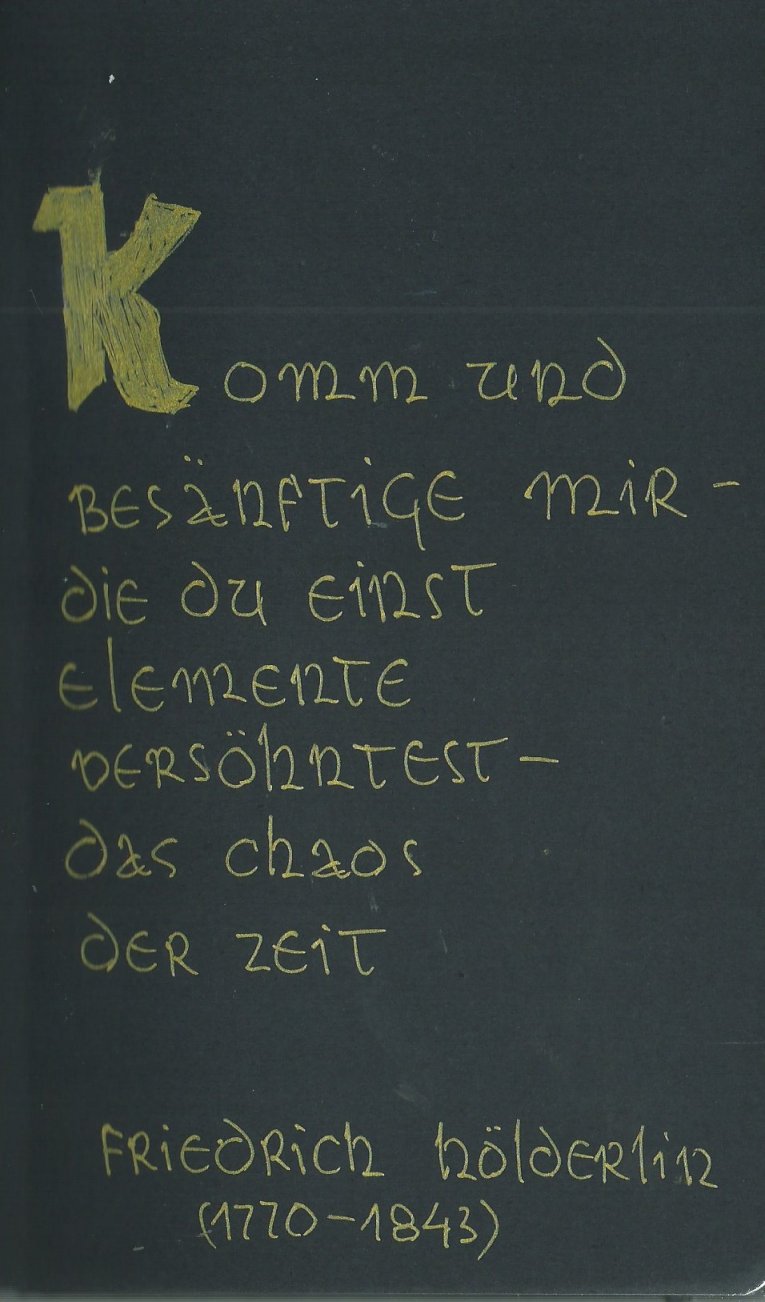 Komm und
besänftige mir –
die du einst
elemente
versöhntest –
das chaos
der zeit
Friedrich Hölderlin
(1770–1843)